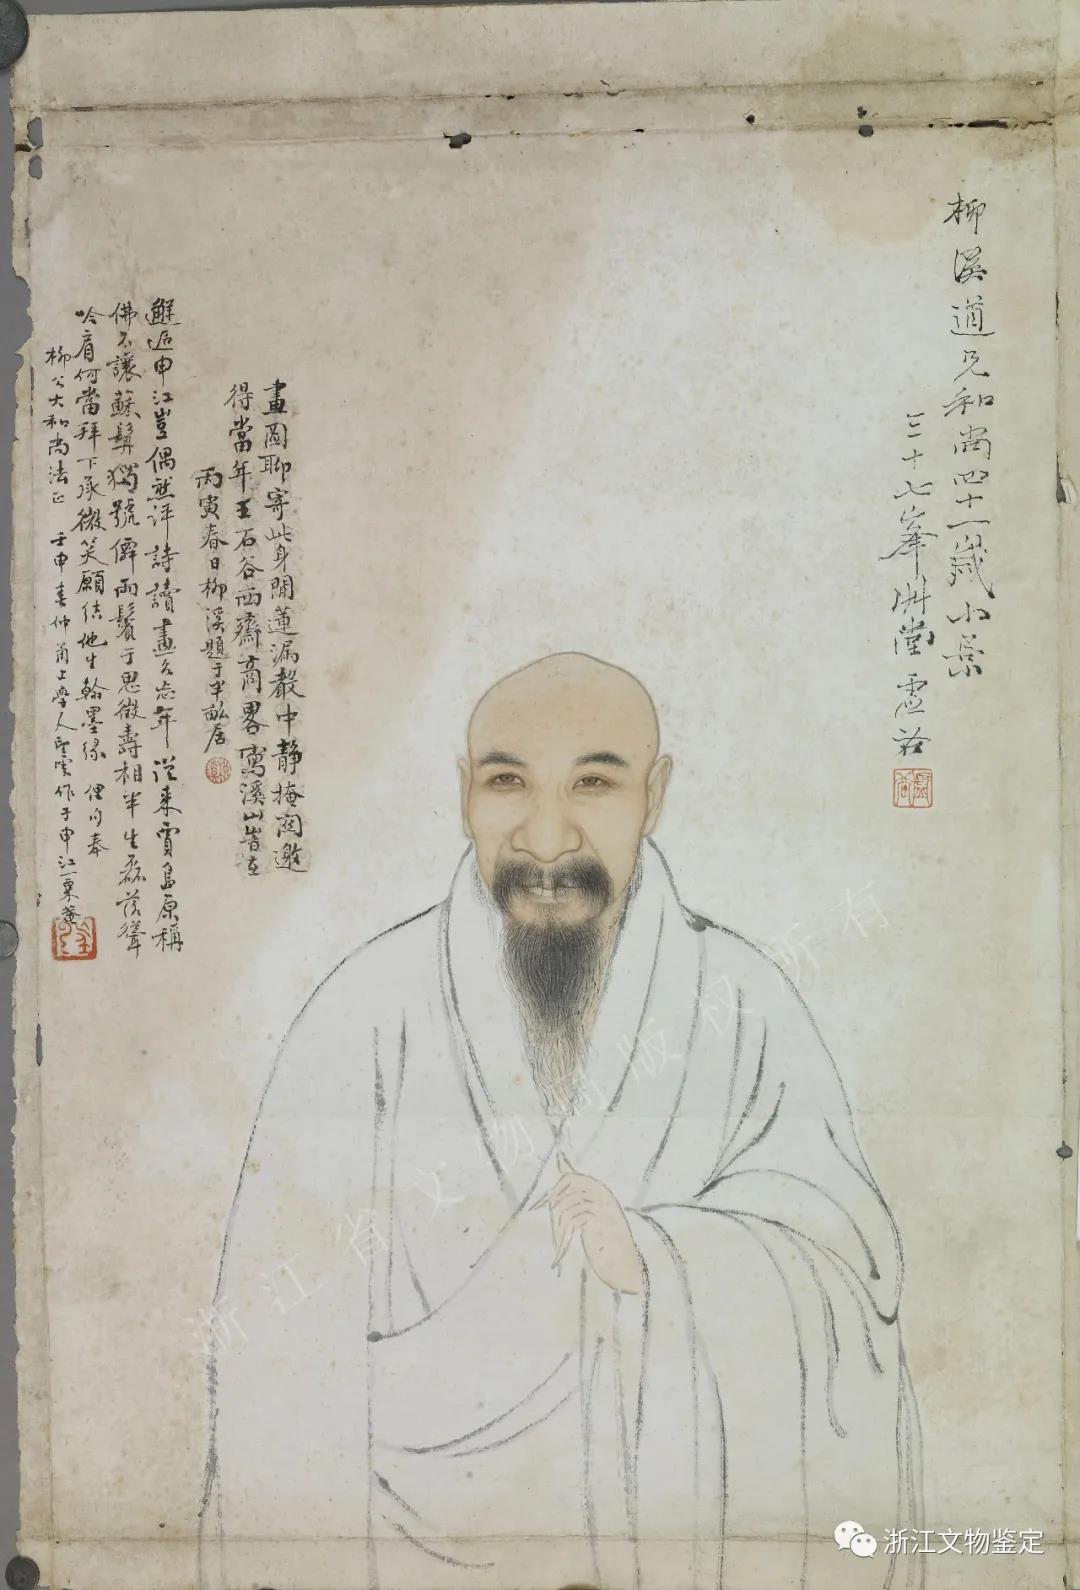 柳溪道兄和尚四十一歲小景
三十七峯艸堂虛谷
畫圖聊寄此身閒蓮漏聲中靜掩關邀
得當年王石谷西齋商畧寫溪山皆在
丙寅春日柳溪題于半畝居
邂逅申江豈偶然評詩讀畫久忘年從來賈島原稱
佛不讓蘇髯獨號僊兩鬢于思徵壽相半生磊落聳
吟肩何當拜下承微笑願結他生翰墨緣 俚句奉
柳公大和尚法正 壬申春仲甬上學人 雲作于申江一粟菴
浙江省文物局版权所有
浙江文物鉴定